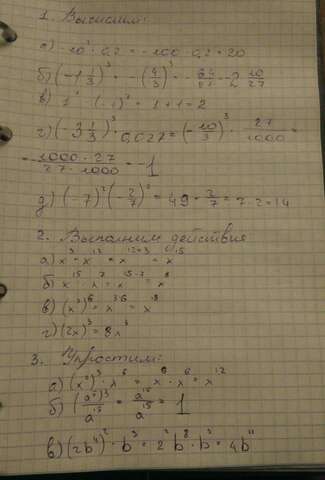 1. Вычислим:
а) -10²·0,2 = -100·0,2 = 20
б) (-1 1/3)³ = -(4/3)³ = -64/27 = -2 10/27
в) 1⁴ - (-1)³ = 1+1=2
г) (-3 1/3)³·0,027 = (-10/3)³·27/1000 =
-1000·27/27·1000 = -1
д) (-7)²(-2/7)² = 49·2/7 = 7·2=14
2. Выполним действия
а) x³·x¹² = x¹²⁺³ = x¹⁵
б) x¹⁵·x⁷ = x¹⁵⁻⁷ = x⁸
в) (x³)⁶ = x³·⁶ = x¹⁸
г) (2x)³ = 8x³
3. Упростим:
а) (x²)³·x⁶ = x⁶·x⁶ = x¹²
б) (a⁵)³/a¹⁵ = a¹⁵/a¹⁵ = 1
в) (2b⁴)²·b³ = 2²b⁸·b³ = 4b¹¹